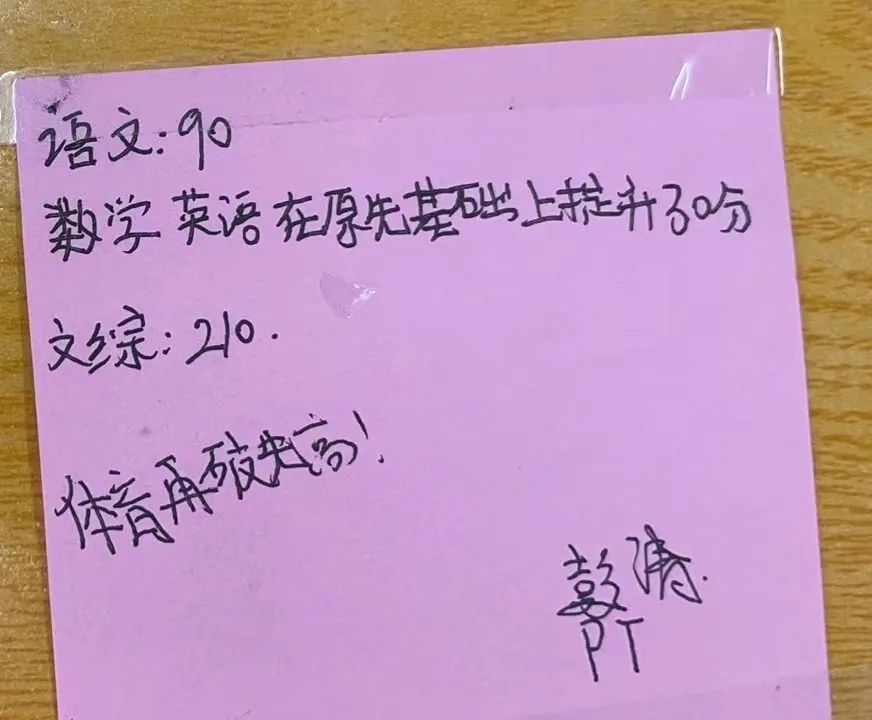 语文:90
数学 英语 在原先基础上提升30分
文综:210.
体育再破新高!
彭涛.
PT